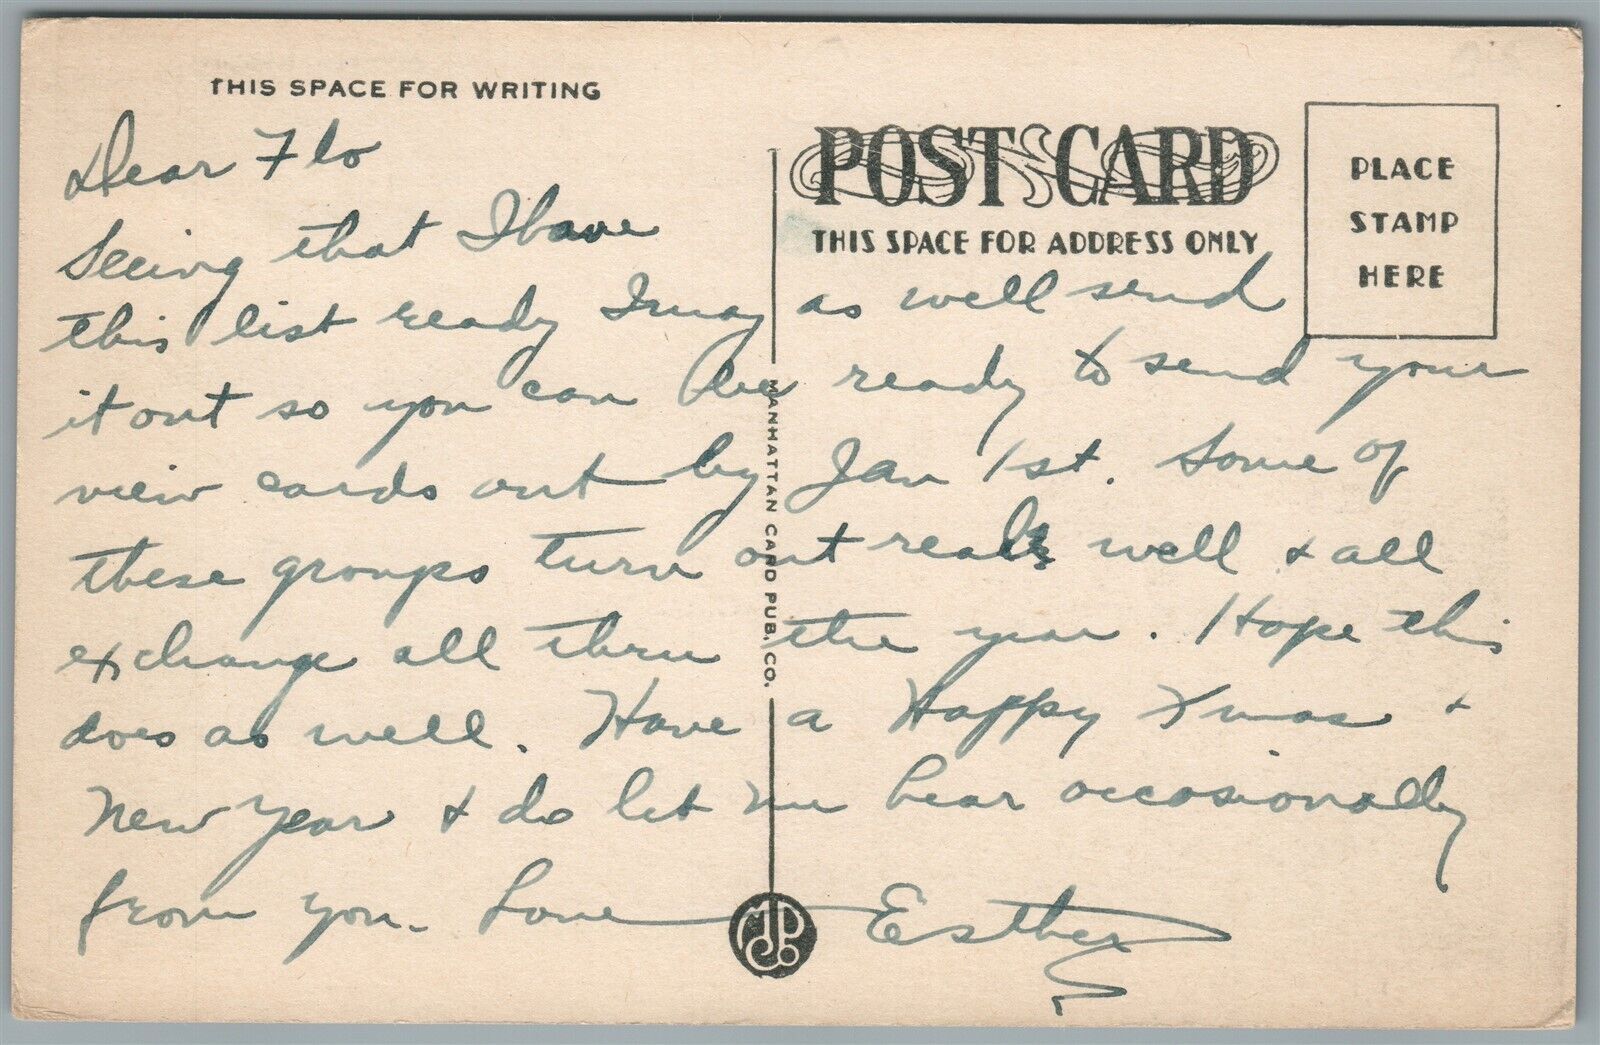 THIS SPACE FOR WRITING
POST CARD
THIS SPACE FOR ADDRESS ONLY
PLACE
STAMP
HERE
Dear Flo
Seeing that I have
this list ready I may as well send
it out so you can be ready to send your
view cards out by Jan 1st. Some of
these groups turn out really well + all
exchange all thru the year. Hope this
does as well. Have a Happy Xmas +
New Year + do let me hear occasionally
from you. Love Esther
MANHATTAN CARD PUB. CO.